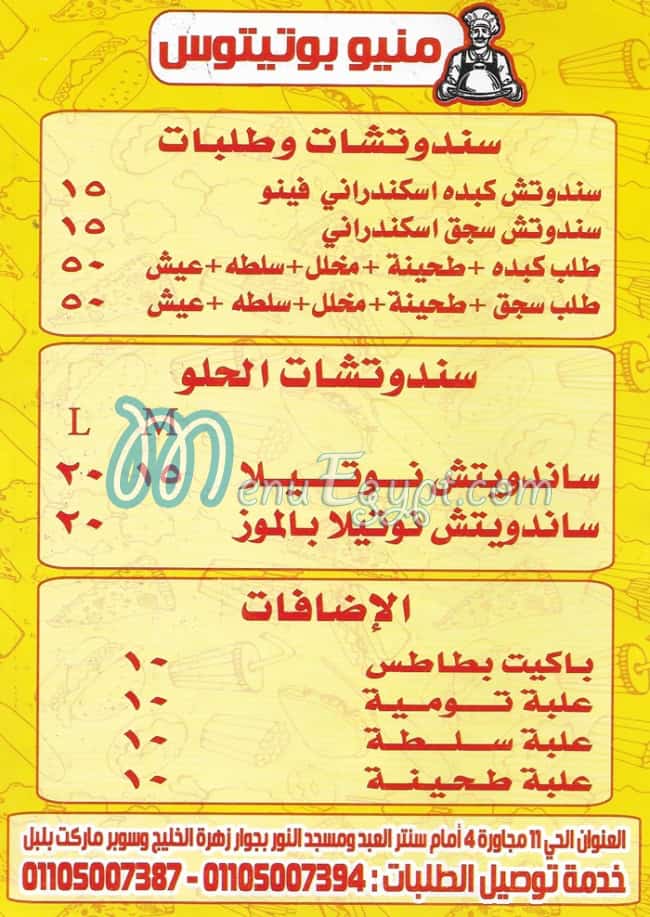 منيو بوتيتوس
سندوتشات وطلبات
سندوتش كبده اسكندراني فينو ١٥
سندوتش سجق اسكندراني ١٥
طلب كبده +طحينة +مخلل+سلطه+عيش ٥٠
طلب سجق +طحينة+مخلل+سلطه+عيش ٥٠
سندوتشات الحلو
M L
ساندويتش نوتيلا ١٥ ٢٠
MenuEgypt.com
ساندويتش توتيلا بالموز ٢٠
الإضافات
باكيت بطاطس ١٠
علبة تومية ١٠
علبة سلطة ١٠
علبة طحينة ١٠
العنوان الحي 11 مجاورة 4 أمام سنتر العبد ومسجد النور بجوار زهرة الخليج وسوبر ماركت بلبل
خدمة توصيل الطلبات : 01105007394 - 01105007387